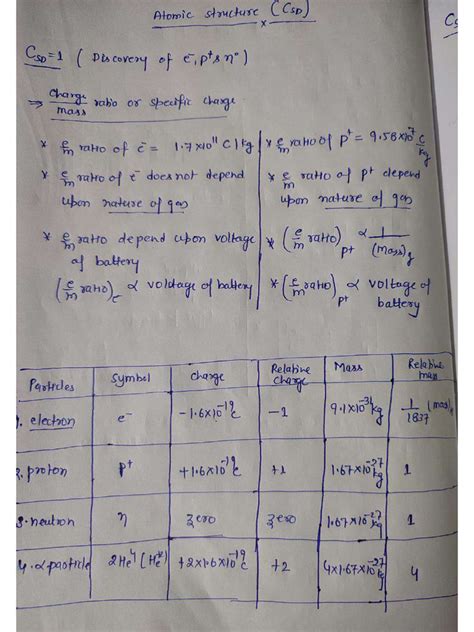 Atomic structure (CSD)
x
CSD=1 ( Discovery of e-, p+ & n° )
⇒ charge/mass ratio or specific charge
* e/m ratio of e- = 1.7x10^11 C/kg
* e/m ratio of e- does not depend
upon nature of gas
* e/m ratio depend upon voltage
of battery
(e/m ratio)e ∝ voldage of battery
* e/m ratio of p+ = 9.58x10^7 C/kg
* e/m ratio of p+ depend
upon nature of gas
* (e/m ratio)p+ ∝ 1/(mass)g
* (e/m ratio)p+ ∝ voltage of
battery
Particles Symbol charge Relative charge Mass Relative mass
1. electron e- -1.6x10^-19 c -1 9.1x10^-31 kg 1/1837 (mass)
2. proton p+ +1.6x10^-19 c +1 1.67x10^-27 kg 1
3. neutron η zero zero 1.67x10^-27 kg 1
4. α particle 2He4 (He) +2x1.6x10^-19 c +2 4x1.67x10^-27 kg 4